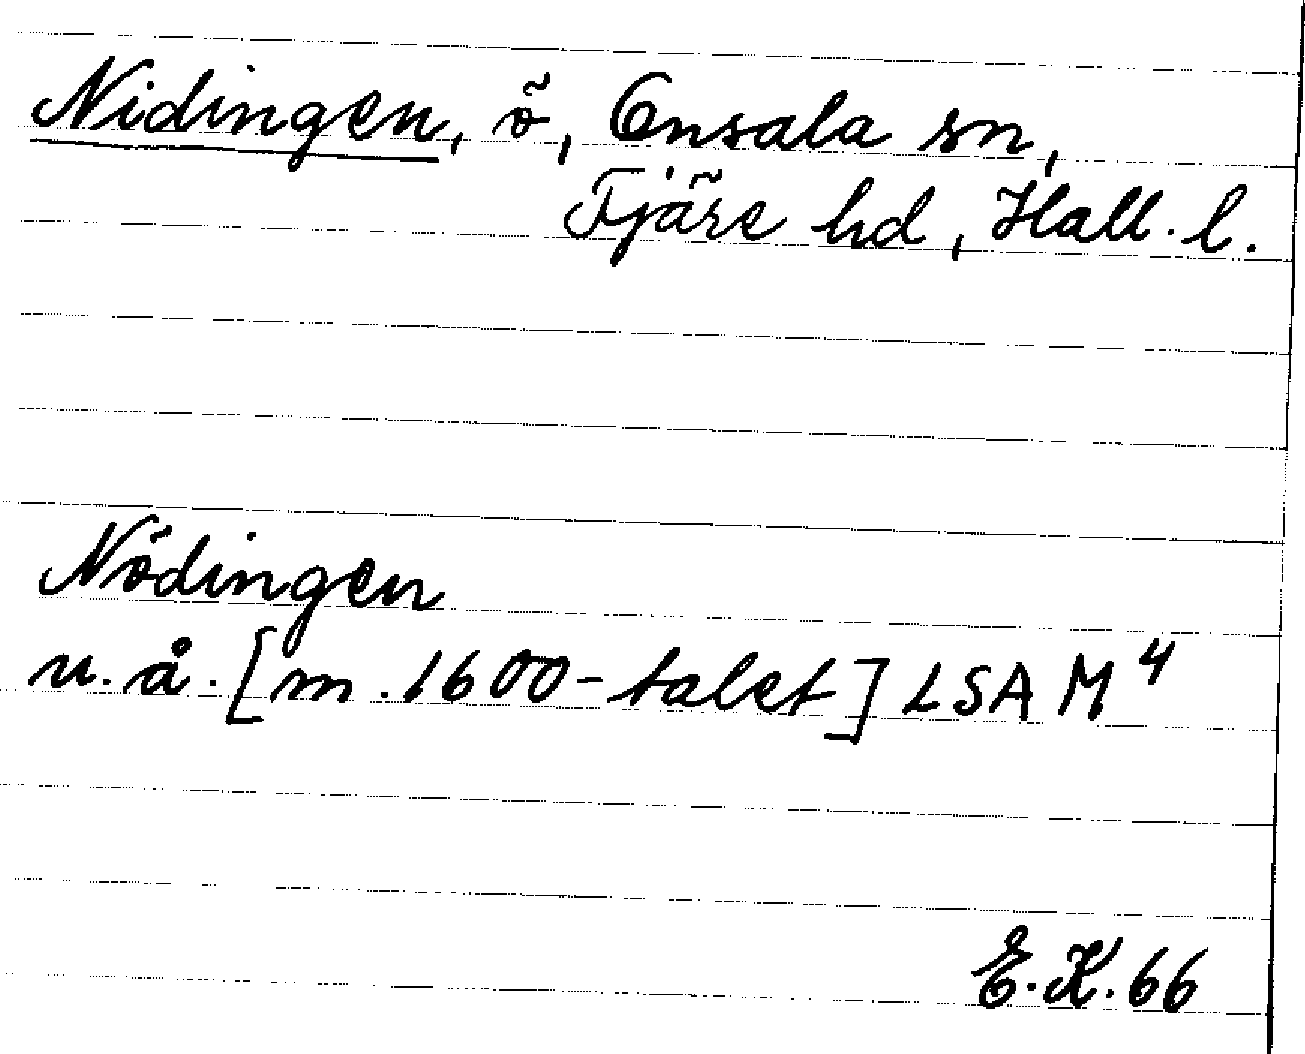 Nidingen, ö, Onsala sn,
Fjäre hd, Hall. l.
Nödingen
u.å. [m. 1600-talet] LSA M4
E.K. 66